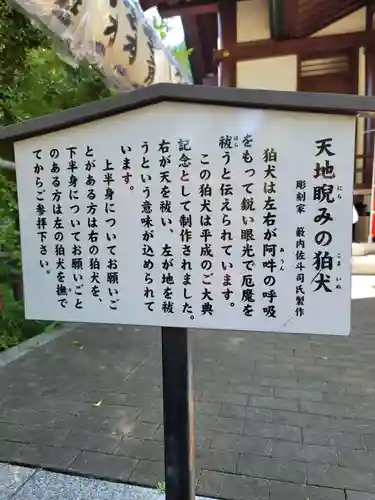 天地睨みの狛犬
にら
こま いぬ
彫刻家 籔内佐斗司氏製作
狛犬は左右が阿吽の呼吸
あ うん
をもって鋭い眼光で厄魔を
祓うと伝えられています。
はら
この狛犬は平成のご大典
記念として制作されました。
右が天を祓い、左が地を祓
うという意味が込められて
います。
上半身についてお願いご
とがある方は右の狛犬を、
下半身についてお願いごと
のある方は左の狛犬を撫で
てからご参拝下さい。